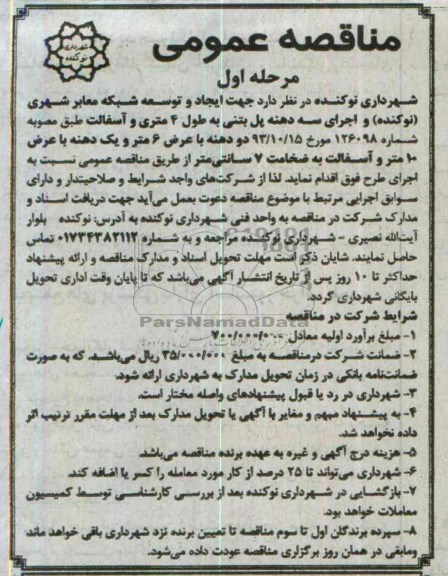 مناقصه عمومی
شهرداری
نوکنده
مرحله اول
شهرداری نوکنده در نظر دارد جهت ایجاد و توسعه شبکه معابر شهری
(نوکنده) و اجرای سه دهنه پل بتنی به طول ۴ متری و آسفالت طبق مصوبه
شماره ۱۲۶۰۹۸ مورخ ۹۳/۱۰/۱۵ دو دهنه با عرض ۶ متر و یک دهنه با عرض
۱۰ متر و آسفالت به ضخامت ۷ سانتی‌متر از طریق مناقصه عمومی نسبت به
اجرای طرح فوق اقدام نماید. لذا از شرکت‌های واجد شرایط و صلاحیتدار و دارای
سوابق اجرایی مرتبط با موضوع مناقصه دعوت بعمل می‌آید جهت دریافت اسناد و
مدارک شرکت در مناقصه به واحد فنی شهرداری نوکنده به آدرس: نوکنده بلوار
آیت‌الله نصیری - شهرداری نوکنده مراجعه و به شماره ۰۱۷۳۴۳۸۲۱۱۲ تماس
حاصل نمایند. شایان ذکر است مهلت تحویل اسناد و مدارک مناقصه و ارائه پیشنهاد
حداکثر تا ۱۰ روز پس از تاریخ انتشار آگهی می‌باشد که تا پایان وقت اداری تحویل
بایگانی شهرداری گردد.
شرایط شرکت در مناقصه
ParsNamadData
۱- مبلغ برآورد اولیه معادل
۲- ضمانت شرکت درمناقصه به مبلغ ۳۵/۰۰۰/۰۰۰ ریال می‌باشد. که به صورت
ضمانت‌نامه بانکی در زمان تحویل مدارک به شهرداری ارائه شود.
۳- شهرداری در رد یا قبول پیشنهادهای واصله مختار است.
۴- به پیشنهاد مبهم و مغایر با آگهی یا تحویل مدارک بعد از مهلت مقرر ترتیب اثر
داده نخواهد شد.
۵- هزینه درج آگهی و غیره به عهده برنده مناقصه می‌باشد.
۶- شهرداری می‌تواند تا ۲۵ درصد از کار مورد معامله را کسر یا اضافه کند.
۷- بازگشایی در شهرداری نوکنده بعد از بررسی کارشناسی توسط کمیسیون
معاملات خواهد بود.
۸- سپرده برندگان اول تا سوم مناقصه تا تعیین برنده نزد شهرداری باقی خواهد ماند
ومابقی در همان روز برگزاری مناقصه عودت داده می‌شود.